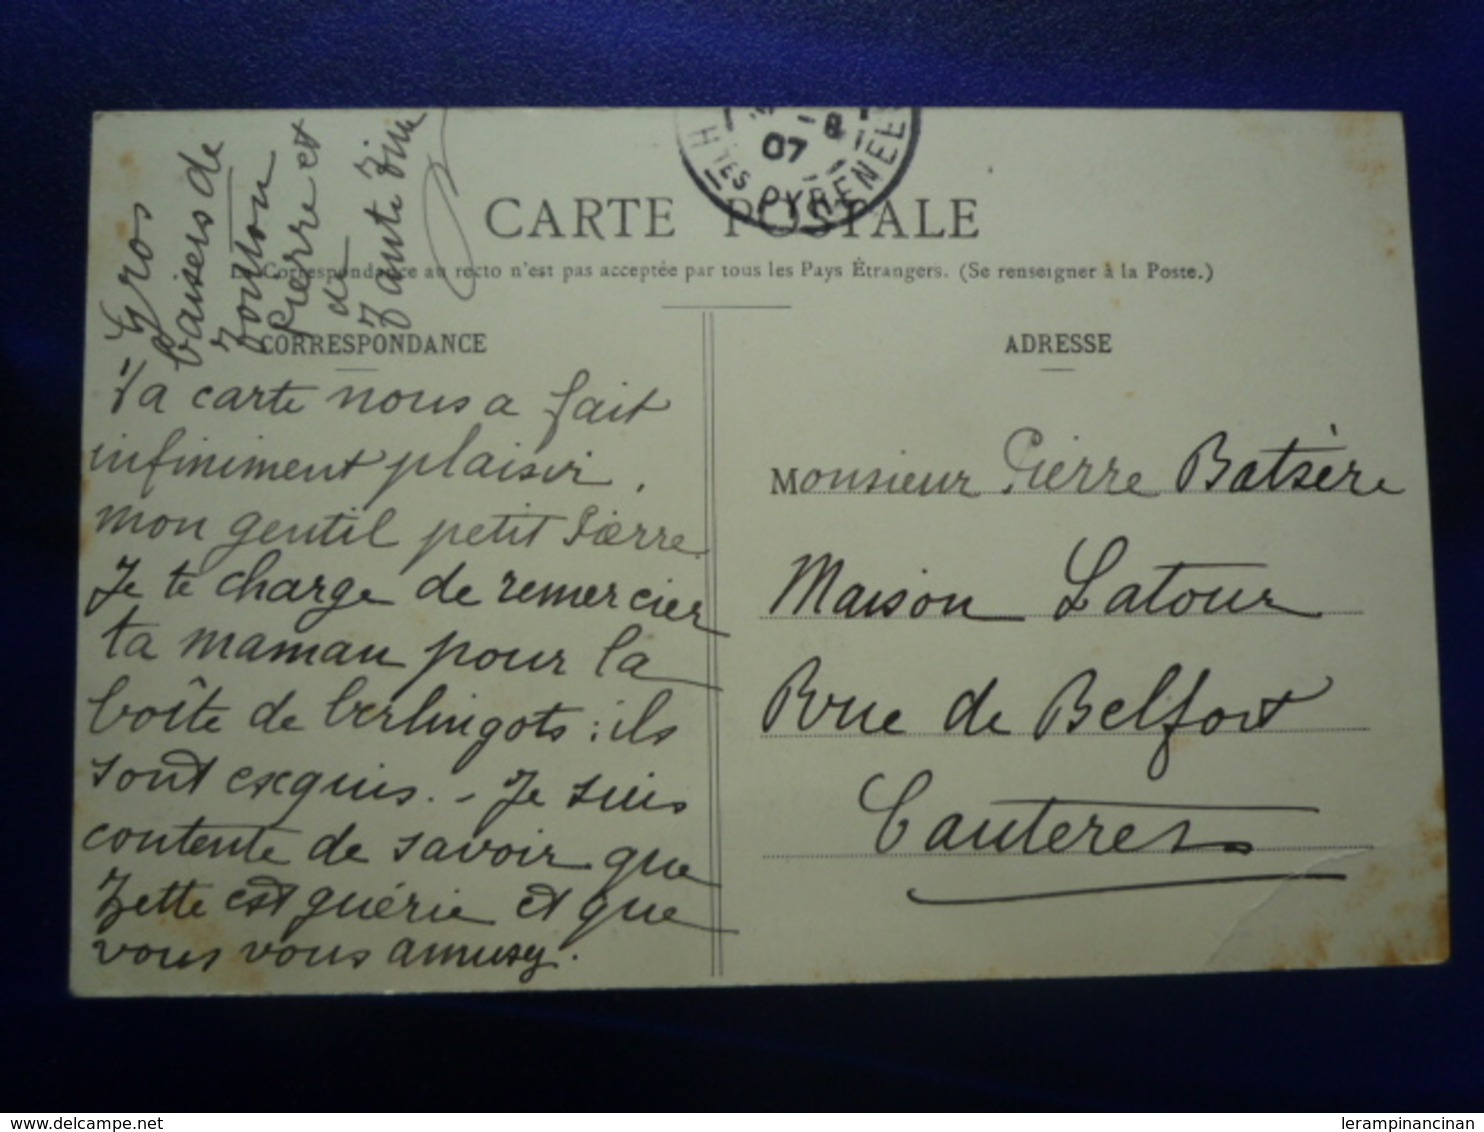 -8
07
Htes PYRÉNÉES
CARTE POSTALE
La Correspondance au recto n'est pas acceptée par tous les Pays Étrangers. (Se renseigner à la Poste.)
CORRESPONDANCE
Ta carte nous a fait
infiniment plaisir,
mon gentil petit Pierre.
Je te charge de remercier
ta maman pour la
boîte de berlingots : ils
sont exquis. - Je suis
contente de savoir que
Zette est guérie et que
vous vous amusez.
Gros
baisers de
Tonton
Pierre et
de
Tante
ADRESSE
Monsieur Pierre Batsère
Maison Latour
Rue de Belfort
Cauterets
delcampe.net
lerampinancinan